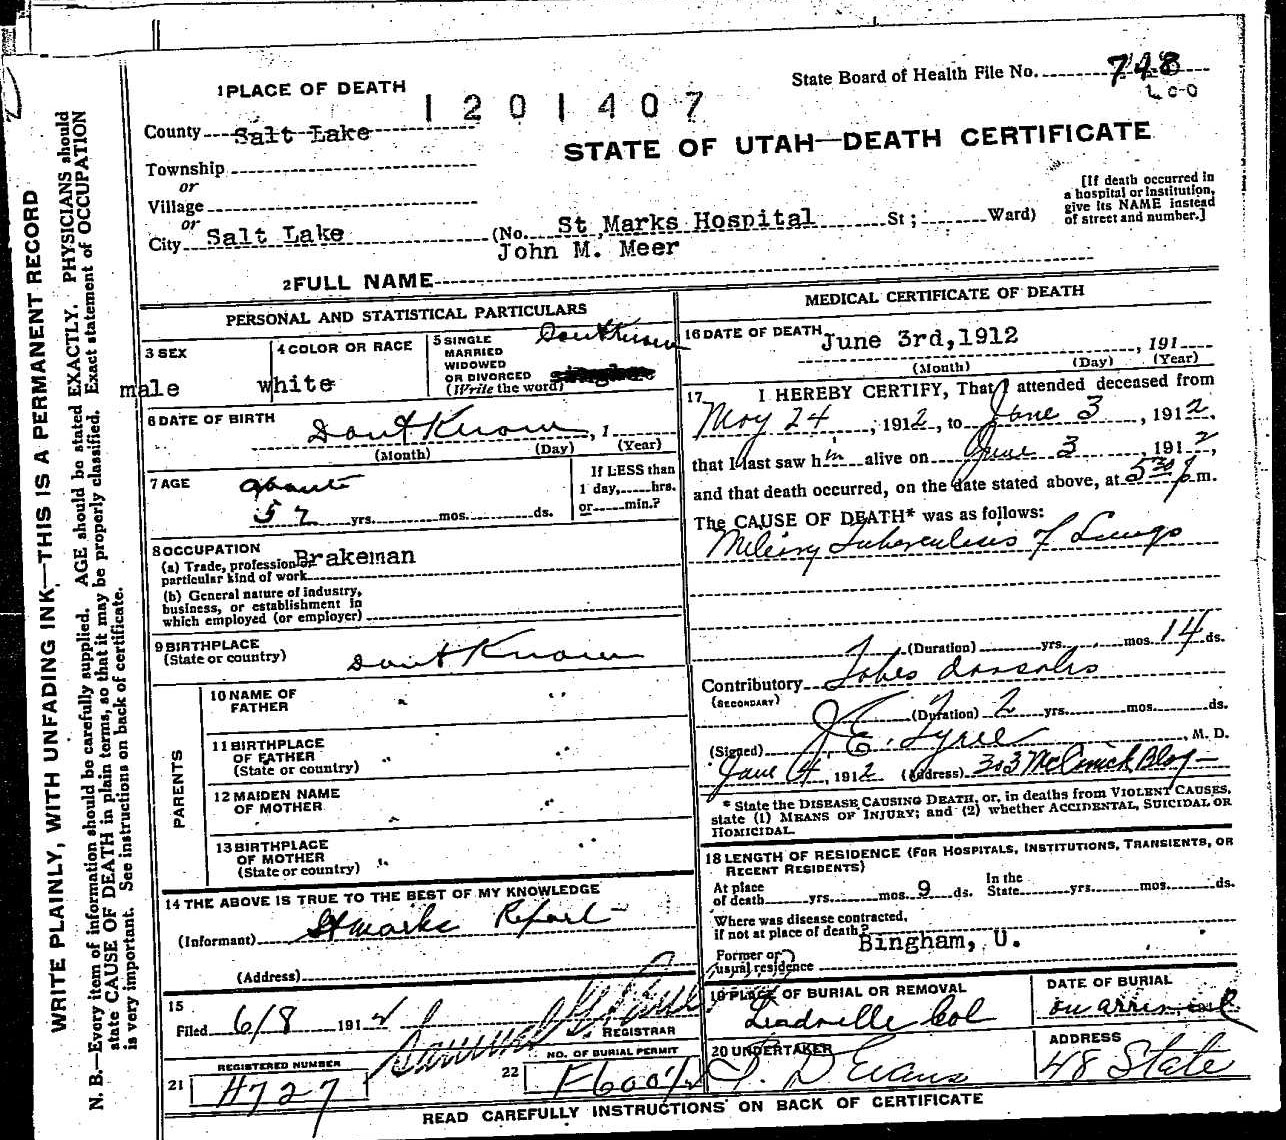 State Board of Health File No. 748
1 PLACE OF DEATH
1201407
County Salt Lake
STATE OF UTAH—DEATH CERTIFICATE
Township
or
Village
or
City Salt Lake (No. St Marks Hospital St; Ward)
[If death occurred in
a hospital or institution,
give its NAME instead
of street and number.]
John M. Meer
2 FULL NAME
PERSONAL AND STATISTICAL PARTICULARS
3 SEX
male
4 COLOR OR RACE
White
5 SINGLE
MARRIED
WIDOWED
OR DIVORCED
(Write the word)
Don't Know
6 DATE OF BIRTH
Don't Know, 1
(Month) (Day) (Year)
7 AGE
about
57 yrs. mos. ds.
If LESS than
1 day, hrs.
or min.?
8 OCCUPATION
(a) Trade, profession or
particular kind of work Brakeman
(b) General nature of industry,
business, or establishment in
which employed (or employer)
9 BIRTHPLACE
(State or country) Don't Know
PARENTS
10 NAME OF
FATHER "
11 BIRTHPLACE
OF FATHER
(State or country) "
12 MAIDEN NAME
OF MOTHER "
13 BIRTHPLACE
OF MOTHER
(State or country) "
14 THE ABOVE IS TRUE TO THE BEST OF MY KNOWLEDGE
(Informant) St Marks Report
(Address)
15
Filed 6/8 1912
REGISTRAR
21 REGISTERED NUMBER
H727
22 NO. OF BURIAL PERMIT
MEDICAL CERTIFICATE OF DEATH
16 DATE OF DEATH
June 3rd, 1912, 191
(Month) (Day) (Year)
17 I HEREBY CERTIFY, That I attended deceased from
May 24, 1912, to June 3, 1912,
that I last saw him alive on June 3 1912,
and that death occurred, on the date stated above, at 5 30 p m.
The CAUSE OF DEATH* was as follows:
Miliary Tuberculosis of Lungs
(Duration) yrs. mos. 14 ds.
Contributory Tabes dorsalis
(SECONDARY)
(Duration) 2 yrs. mos. ds.
(Signed) J. E. Tyree, M. D.
June 4, 1912 (Address) 303 McCornick Bldg
* State the DISEASE CAUSING DEATH, or, in deaths from VIOLENT CAUSES,
state (1) MEANS OF INJURY; and (2) whether ACCIDENTAL, SUICIDAL OR
HOMICIDAL.
18 LENGTH OF RESIDENCE (FOR HOSPITALS, INSTITUTIONS, TRANSIENTS, OR
RECENT RESIDENTS)
At place
of death yrs. mos. 9 ds. In the
State yrs. mos. ds.
Where was disease contracted,
if not at place of death?
Former or
usual residence Bingham, U.
19 PLACE OF BURIAL OR REMOVAL
Leadville Col
DATE OF BURIAL
on arrival
20 UNDERTAKER
D Evans
ADDRESS
48 State
READ CAREFULLY INSTRUCTIONS ON BACK OF CERTIFICATE
WRITE PLAINLY, WITH UNFADING INK—THIS IS A PERMANENT RECORD
N. B.—Every item of information should be carefully supplied. AGE should be stated EXACTLY. PHYSICIANS should
state CAUSE OF DEATH in plain terms, so that it may be properly classified. Exact statement of OCCUPATION
is very important. See instructions on back of certificate.